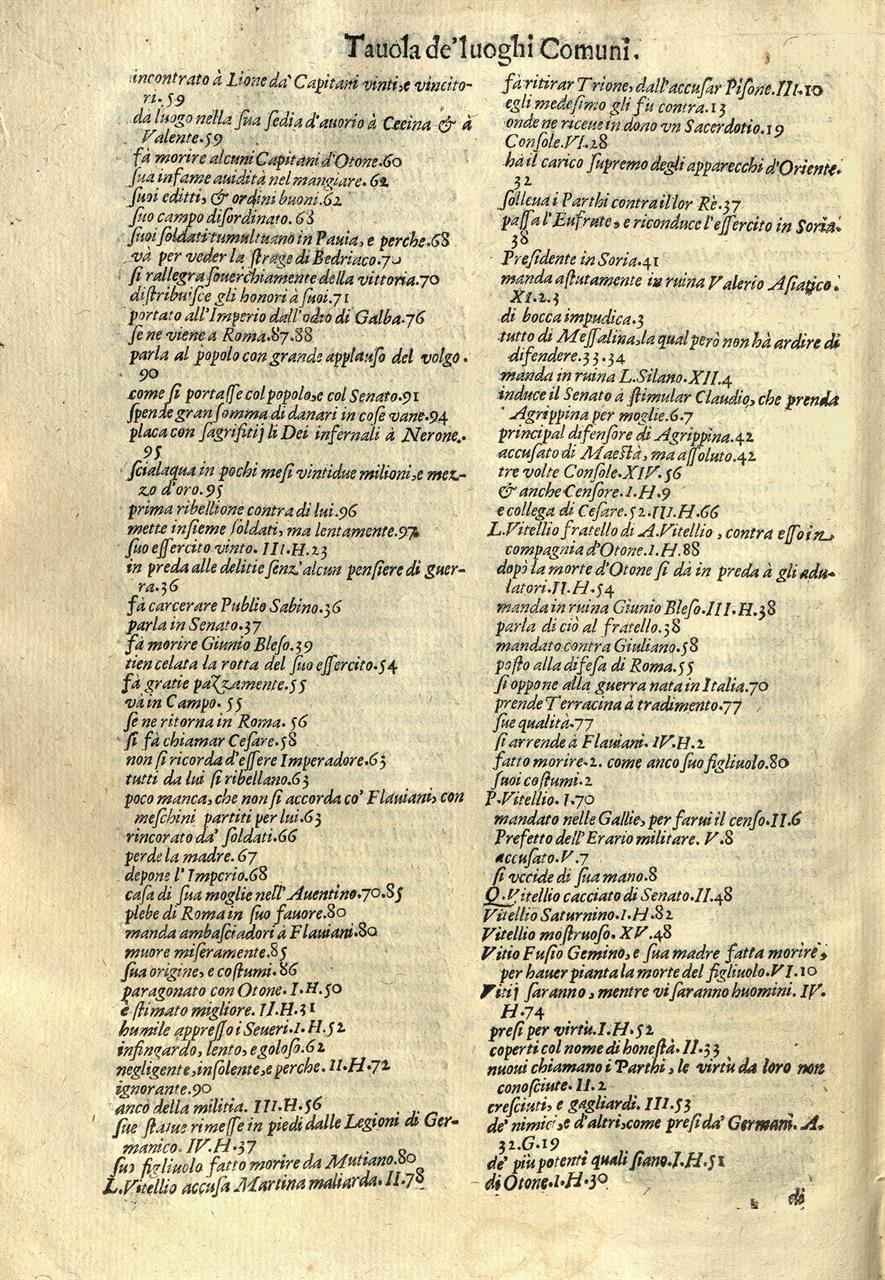 Tauola de' luoghi Comuni.
incontrato à Lione da' Capitani vinti, e vincito-
ri. 59
dà luogo nella sua sedia d'auorio à Cecina & à
Valente. 59
fà morire alcuni Capitani d'Otone. 60
sua infame auidità nel mangiare. 62
suoi editti, & ordini buoni. 62
suo campo disordinato. 68
suoi soldati tumultuano in Pauia, e perche. 68
và per veder la strage di Bedriaco. 70
si rallegra souerchiamente della vittoria. 70
distribuisce gli honori à suoi. 71
portato all'Imperio dall'odio di Galba. 76
se ne viene a Roma. 87. 88
parla al popolo con grande applauso del volgo.
90
come si portasse col popolo, e col Senato. 91
spende gran somma di danari in cose vane. 94
placa con sagrifitij li Dei infernali à Nerone.
95
scialaqua in pochi mesi vintidue milioni, e mez-
zo d'oro. 95
prima ribellione contra di lui. 96
mette insieme soldati, ma lentamente. 97
suo essercito vinto. III. H. 23
in preda alle delitie senz'alcun pensiere di guer-
ra. 36
fà carcerare Publio Sabino. 36
parla in Senato. 37
fà morire Giunio Bleso. 39
tien celata la rotta del suo essercito. 54
fà gratie pazzamente. 55
và in Campo. 55
se ne ritorna in Roma. 56
si fà chiamar Cesare. 58
non si ricorda d'essere Imperadore. 63
tutti da lui si ribellano. 63
poco manca, che non si accorda co' Flauiani, con
meschini partiti per lui. 63
rincorato da' soldati. 66
perde la madre. 67
depone l'Imperio. 68
casa di sua moglie nell'Auentino. 70. 85
plebe di Roma in suo fauore. 80
manda ambasciadori à Flauiani. 80
muore miseramente. 85
sua origine, e costumi. 86
paragonato con Otone. I. H. 50
è stimato migliore. II. H. 31
humile appresso i Seueri. I. H. 52
infingardo, lento, e goloso. 62
negligente, insolente, e perche. II. H. 72
ignorante. 90
anco della militia. III. H. 56
sue statue rimesse in piedi dalle Legioni di Ger-
manico. IV. H. 37
suo figliuolo fatto morire da Mutiano. 80
L. Vitellio accusa Martina maliarda. II. 78
fà ritirar Trione, dall'accusar Pisone. III. 10
egli medesimo gli fu contra. 13
onde ne riceue in dono vn Sacerdotio. 19
Console. VI. 28
hà il carico supremo degli apparecchi d'Oriente.
32
solleua i Parthi contra il lor Rè. 37
passa l'Eufrate, e riconduce l'essercito in Soria.
38
Presidente in Soria. 41
manda astutamente in ruina Valerio Asiatico.
XI. 2. 3
di bocca impudica. 3
tutto di Messalina, la qual però non hà ardire di
difendere. 33. 34
manda in ruina L. Silano. XII. 4
induce il Senato à stimular Claudio, che prenda
Agrippina per moglie. 6. 7
principal difensore di Agrippina. 42
accusato di Maestà, ma assoluto. 42
tre volte Console. XIV. 56
& anche Censore. I. H. 9
e collega di Cesare. 52. III. H. 66
L. Vitellio fratello di A. Vitellio, contra esso in
compagnia d'Otone. I. H. 88
dopò la morte d'Otone si dà in preda à gli adu-
latori. II. H. 54
manda in ruina Giunio Bleso. III. H. 38
parla di ciò al fratello. 38
mandato contra Giuliano. 58
posto alla difesa di Roma. 55
si oppone alla guerra nata in Italia. 70
prende Terracina à tradimento. 77
sue qualità. 77
si arrende à Flauiani. IV. H. 2
fatto morire. 2. come anco suo figliuolo. 80
suoi costumi. 2
P. Vitellio. I. 70
mandato nelle Gallie, per farui il censo. II. 6
Prefetto dell'Erario militare. V. 8
accusato. V. 7
si vccide di sua mano. 8
Q. Vitellio cacciato di Senato. II. 48
Vitellio Saturnino. I. H. 82
Vitello mostruoso. XV. 48
Vitio Fusio Gemino, e sua madre fatta morire,
per hauer pianta la morte del figliuolo. VI. 10
Vitij saranno, mentre vi saranno huomini. IV.
H. 74
presi per virtù. I. H. 52
coperti col nome di honestà. II. 33
nuoui chiamano i Parthi, le virtù da loro non
conosciute. II. 2
cresciuti, e gagliardi. III. 53
de' nimici, e d'altri, come presi da' Germani. A.
32. G. 19
de' più potenti quali siano. I. H. 51
di Otone. I. H. 30
di